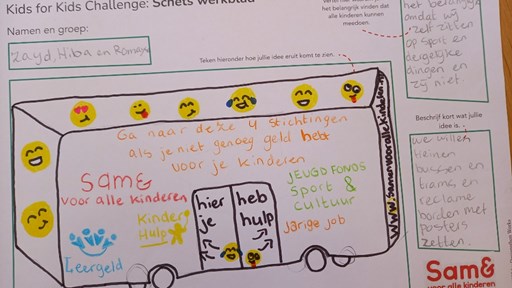 Kids for Kids Challenge: Schets werkblad
Namen en groep:
Zayd, Hiba en Romeysa
het belangrijk vinden dat
alle kinderen kunnen
meedoen.
Teken hieronder hoe jullie idee eruit komt te zien.
het belangrijk
omdat wij
zelf zitten
op sport en
dergelijke
dingen en
zij niet.
Ga naar deze 4 stichtingen
als je niet genoeg geld hebt
voor je kinderen
Sam&
voor alle kinderen
Kinder
Hulp
Leergeld
hier
je
heb
hulp
JEUGD FONDS
Sport &
Cultuur
jarige job
www.samenvoorallekinderen.nl
Beschrijf kort wat jullie
idee is.
we willen
bussen en
trams en
reclame
borden met
posters
zetten.
Sam&
voor alle kinderen